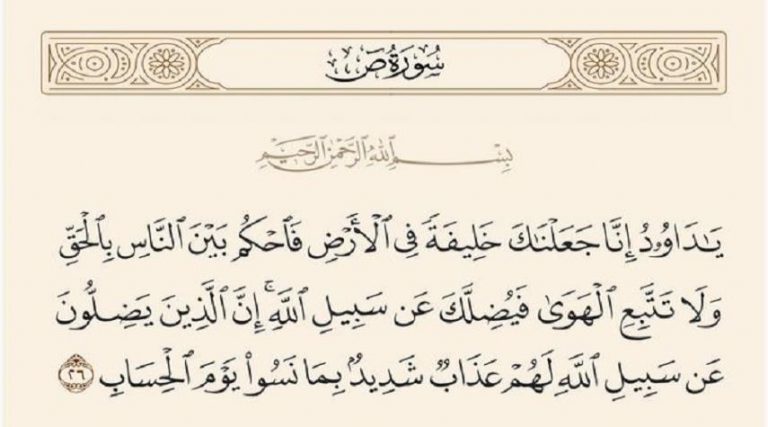 سُورَةُ صٓ
بِسۡمِ ٱللَّهِ ٱلرَّحۡمَٰنِ ٱلرَّحِيمِ
يَٰدَاوُۥدُ إِنَّا جَعَلۡنَٰكَ خَلِيفَةٗ فِي ٱلۡأَرۡضِ فَٱحۡكُم بَيۡنَ ٱلنَّاسِ بِٱلۡحَقِّ
وَلَا تَتَّبِعِ ٱلۡهَوَىٰ فَيُضِلَّكَ عَن سَبِيلِ ٱللَّهِۚ إِنَّ ٱلَّذِينَ يَضِلُّونَ
عَن سَبِيلِ ٱللَّهِ لَهُمۡ عَذَابٞ شَدِيدُۢ بِمَا نَسُواْ يَوۡمَ ٱلۡحِسَابِ ٢٦